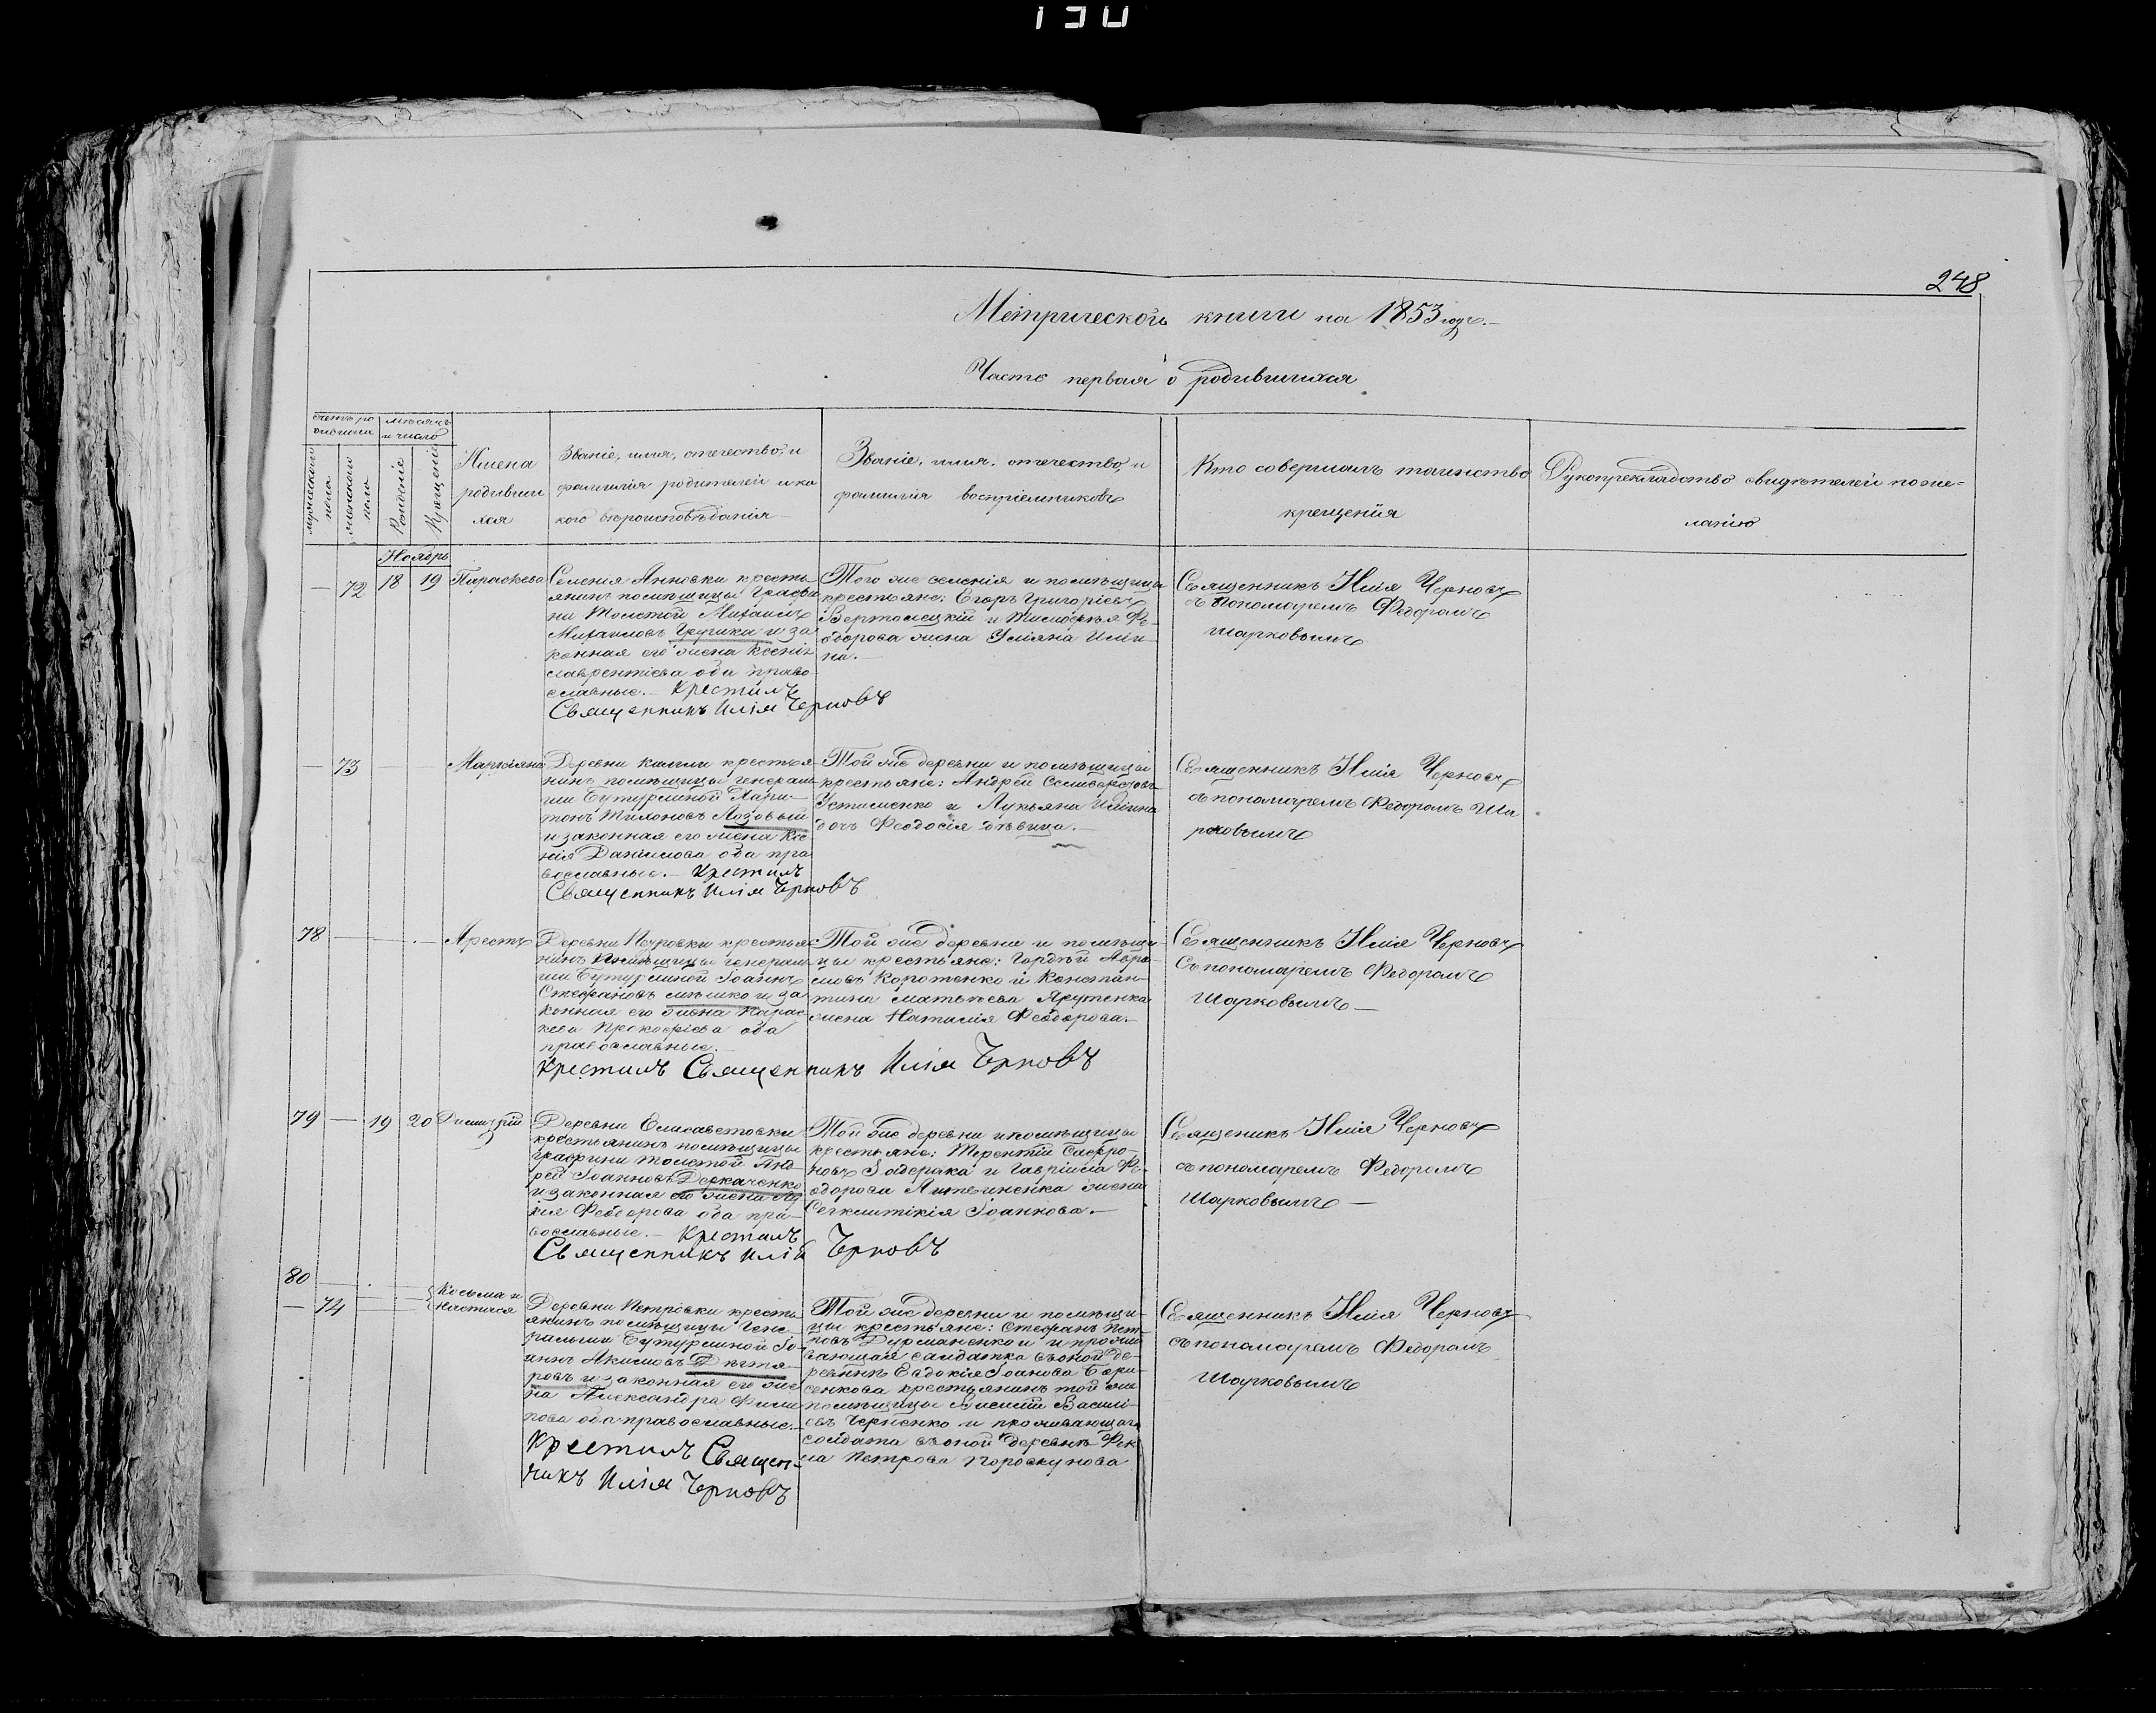 130
248
Метрической книги на 1853 годъ.
Часть первая о родившихся
счетъ родившихся
мѣсяцъ и число
мужескаго пола
женскаго пола
Рожденіе
Крещеніе
Имена
родивши
хся
Званіе, имя, отечество, и
фамилія родителей и ка
кого вѣроисповѣданія
Званіе, имя, отечество и
фамилія воспріемниковъ
Кто совершалъ таинство
крещенія
Рукоприкладство свидѣтелей по же-
ланію
Ноябрь
— 72 18 19 Параскева
Селенія Анновки кресть
янинъ помѣщицы Графи
ни Толстой Михаилъ
Михаиловъ и за
конная его жена Ксенія
Лаврентіева оба право
славные.— Крестилъ
Священникъ Илія Черновъ
Того же селенія и помѣщицы
крестьяне: Егоръ Григоріевъ
и Тимофѣя Фе-
одорова жена Уліяна Ильи-
на.—
Священникъ Илія Черновъ
съ пономаремъ Федоромъ
Шарковымъ
— 73 — — Маркіяна
Деревни крестья
нинъ помѣщицы Генераль
ши Бутурлиной Хари-
тонъ Тихоновъ Лозовый
и законная его жена Ксе
нія Даніилова оба пра
вославные.— Крестилъ
Священникъ Илія Черновъ
Той же деревни и помѣщицы
крестьяне: Андрей Селиверстовъ
Устименко и Лукьяна Ильина
дочь Феодосія дѣвица.—
Священникъ Илія Черновъ
съ пономаремъ Федоромъ Ша
рковымъ
78 — — — Арестъ
Деревни Петровки крестья
нинъ помѣщицы Генераль
ши Бутурлиной Іоаннъ
Стефановъ и за
конная его жена Парас
кева Прокофіева оба
православные.—
Крестилъ Священникъ Илія Черновъ
Той же деревни и помѣщи-
цы крестьяне: Гордѣй Авра-
мовъ Коротенко и Констан-
тина Матвѣева
жена Наталія Феодорова.—
Священникъ Илія Черновъ
Съ пономаремъ Федоромъ
Шарковымъ —
79 — 19 20 Димитрій
Деревни Елисаветовки
крестьянинъ помѣщицы
Графини Толстой Анд-
рей Іоанновъ Деркаченко
и законная его жена
Феодорова оба пра-
вославные.— Крестилъ
Священникъ Илія Черновъ
Той же деревни и помѣщицы
крестьяне: Терентій Сафро-
новъ и Гавріила Фе-
одорова жена
Іоаннова.—
Священикъ Илія Черновъ
съ пономаремъ Федоромъ
Шарковымъ —
80 — — — Косьма и
— 74 — — Настасія
Деревни Петровки кресть
янинъ помѣщицы Гене-
ральши Бутурлиной Іо-
аннъ Акимовъ Дегтя-
ровъ и законная его же
на Александра Фили
пова оба православные.—
Крестилъ Священ-
никъ Илія Черновъ
Той же деревни и помѣщи-
цы крестьяне: Стефанъ Пет-
ровъ и прожи
вающая салдатка въ оной де-
ревнѣ Евдокія Іоанова Бори-
сенкова крестьянинъ той же
помѣщицы Василі-
евъ Черненко и проживающаго
солдата въ оной деревнѣ Фек-
ла Петрова
Священникъ Илія Черновъ
съ пономаремъ Федоромъ
Шарковымъ